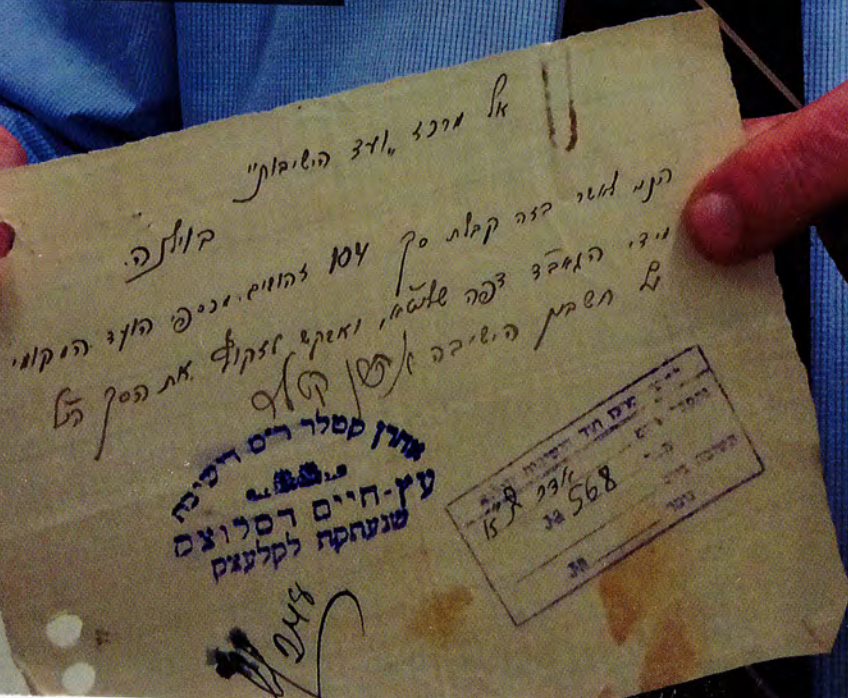 אל מרכז „ועד הישיבות"
בוילנה.
הננו לאשר בזה קבלת סך 104 זהובים מכספי הועד המקומי
מידי הגאב"ד דפה שליט"א, ואבקש לזקוף את הסך הנ"ל
על חשבון הישיבה אהרן קטלר
אהרן קטלר ר"מ דישיבה
עץ-חיים דסלוצק
שנעתקת לקלעצק
אדר
568
№
№
248